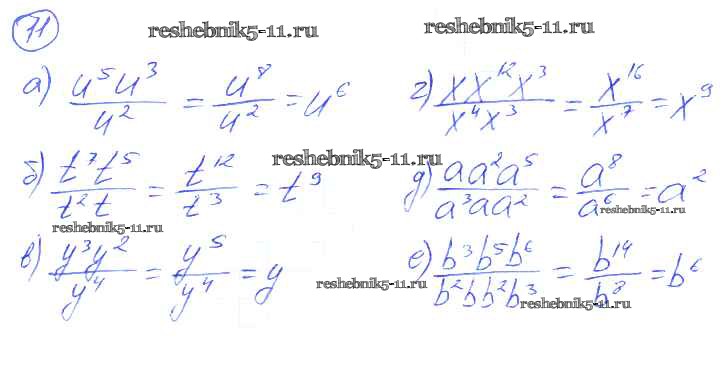 71
reshebnik5-11.ru reshebnik5-11.ru
а) u⁵u³/u² = u⁸/u² = u⁶
г) xx¹²x³/x⁴x³ = x¹⁶/x⁷ = x⁹
reshebnik5-11.ru
б) t⁷t⁵/t²t = t¹²/t³ = t⁹
д) aa²a⁵/a³aa² = a⁸/a⁶ = a²
reshebnik5-11.ru reshebnik5-11.ru
в) y³y²/y⁴ = y⁵/y⁴ = y
е) b³b⁵b⁶/b²bb²b³ = b¹⁴/b⁸ = b⁶
reshebnik5-11.ru reshebnik5-11.ru